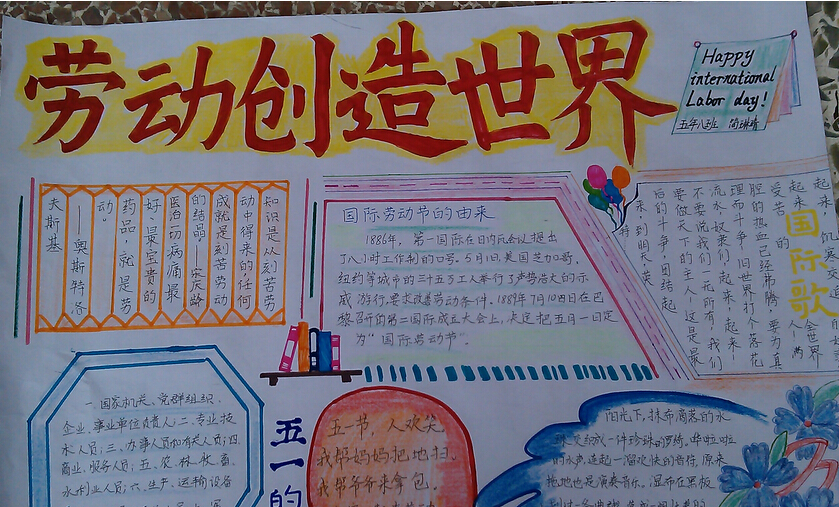 劳动创造世界
Happy
international
Labor day!
五年八班 简琳晴
知识是从刻苦劳
动中得来的,任何
成就是刻苦劳动
的结晶——宋庆龄
医治一切病痛最
好、最宝贵的
药品,就是劳
动。
——奥斯特洛
夫斯基
国际劳动节的由来
1886年,第一国际在日内瓦会议提出
了八小时工作制的口号。5月1日,美国芝加哥,
纽约等城市的三十五万工人举行了声势浩大的示
威游行,要求改善劳动条件。1889年7月14日在巴
黎召开的第二国际成立大会上,决定把五月一日定
为“国际劳动节”。
国际歌
受苦的
腔的热血已经沸腾,要为真
理而斗争!旧世界打个落花
流水,奴隶们起来,起来!
不要说我们一无所有,我们
要做天下的主人!这是最
后的斗争,团结起
来到明天,英
特
一、国家机关、党群组织、
企业、事业单位负责人;二、专业技
术人员;三、办事人员和有关人员;四、
商业、服务人员;五、农、林、牧、畜、
水利业人员;六、生产、运输设备
五一的
五一节,人欢笑,
我帮妈妈把地扫。
我帮爷爷来拿包。
阳光下,抹布滴落的水
珠交织成一件珍珠的罗绮。哗啦啦
的水声,连起一溜欢快的音符,原来
拖地也是演奏音乐。湿布在黑板